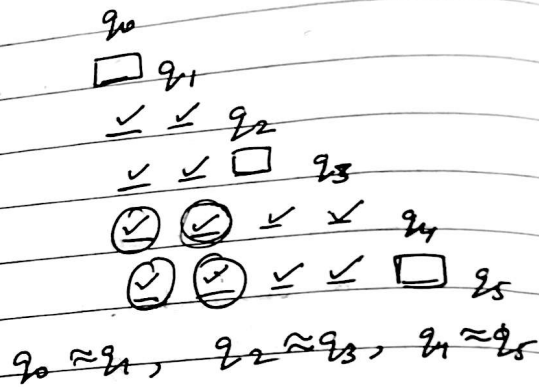 q₀
□ q₁
✓ ✓ q₂
✓ ✓ □ q₃
✓ ✓ ✓ ✓ q₄
✓ ✓ ✓ ✓ □ q₅
q₀ ≈ q₁, q₂ ≈ q₃, q₄ ≈ q₅